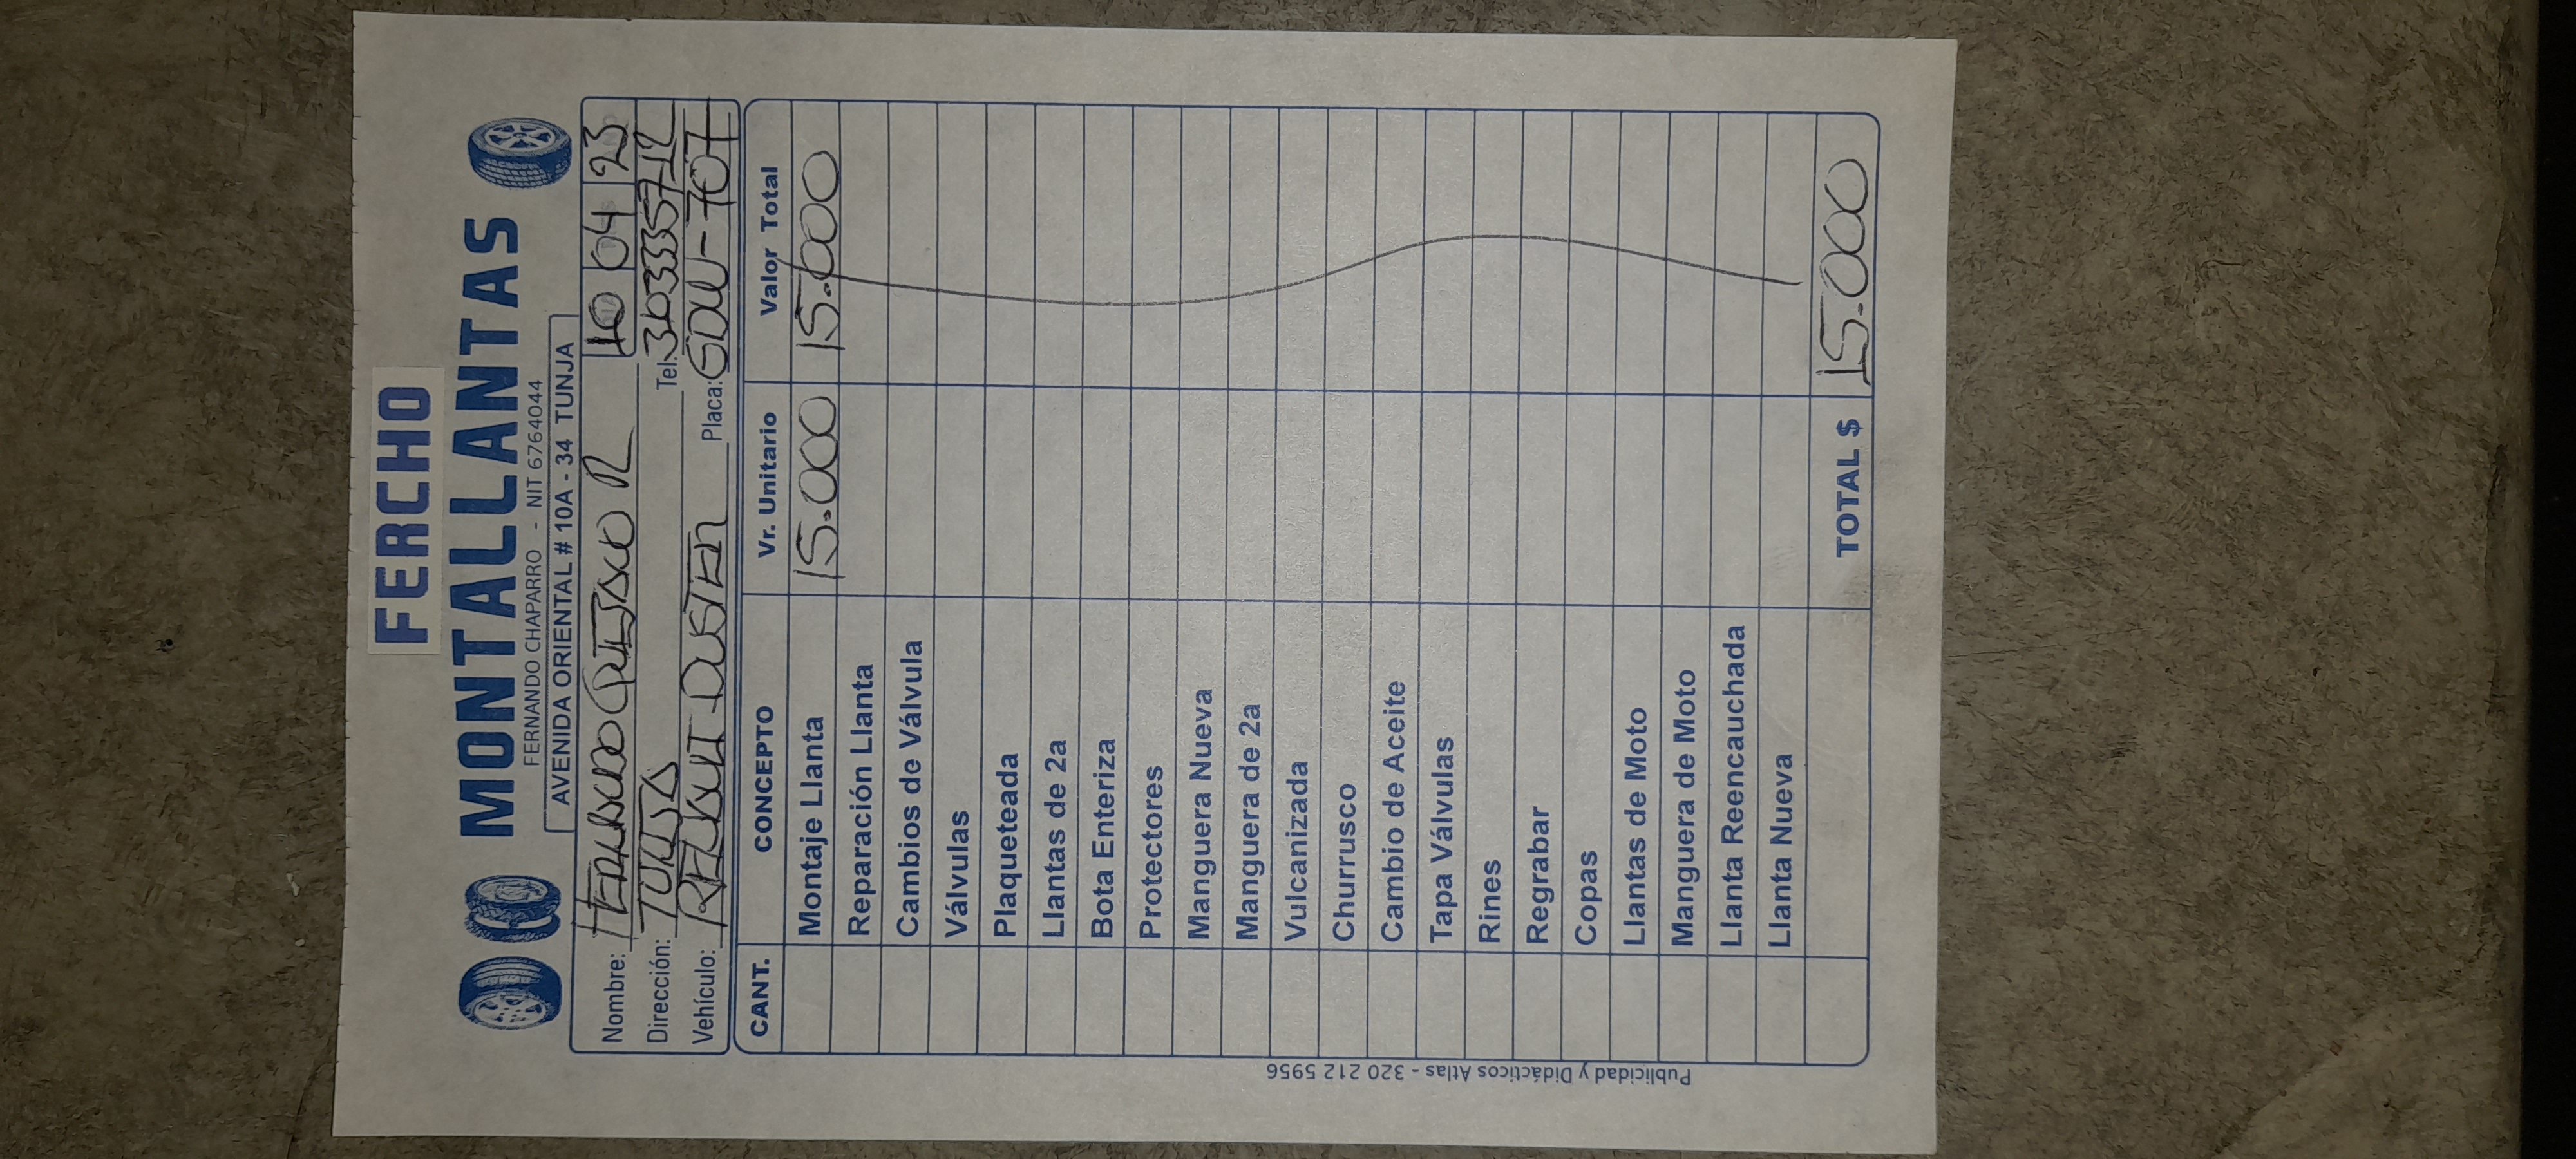 FERCHO
MONTALLANTAS
FERNANDO CHAPARRO - NIT 6764044
AVENIDA ORIENTAL # 10A - 34 TUNJA
10 04 23
Nombre: R
Dirección: TUNJA Tel.
Vehículo: RENAULT DUSTER Placa: GDW-707
CANT. CONCEPTO Vr. Unitario Valor Total
Montaje Llanta 15.000 15.000
Reparación Llanta
Cambios de Válvula
Válvulas
Plaqueteada
Llantas de 2a
Bota Enteriza
Protectores
Manguera Nueva
Manguera de 2a
Vulcanizada
Churrusco
Cambio de Aceite
Tapa Válvulas
Rines
Regrabar
Copas
Llantas de Moto
Manguera de Moto
Llanta Reencauchada
Llanta Nueva
TOTAL $ 15.000
Publicidad y Didácticos Atlas - 320 212 5956